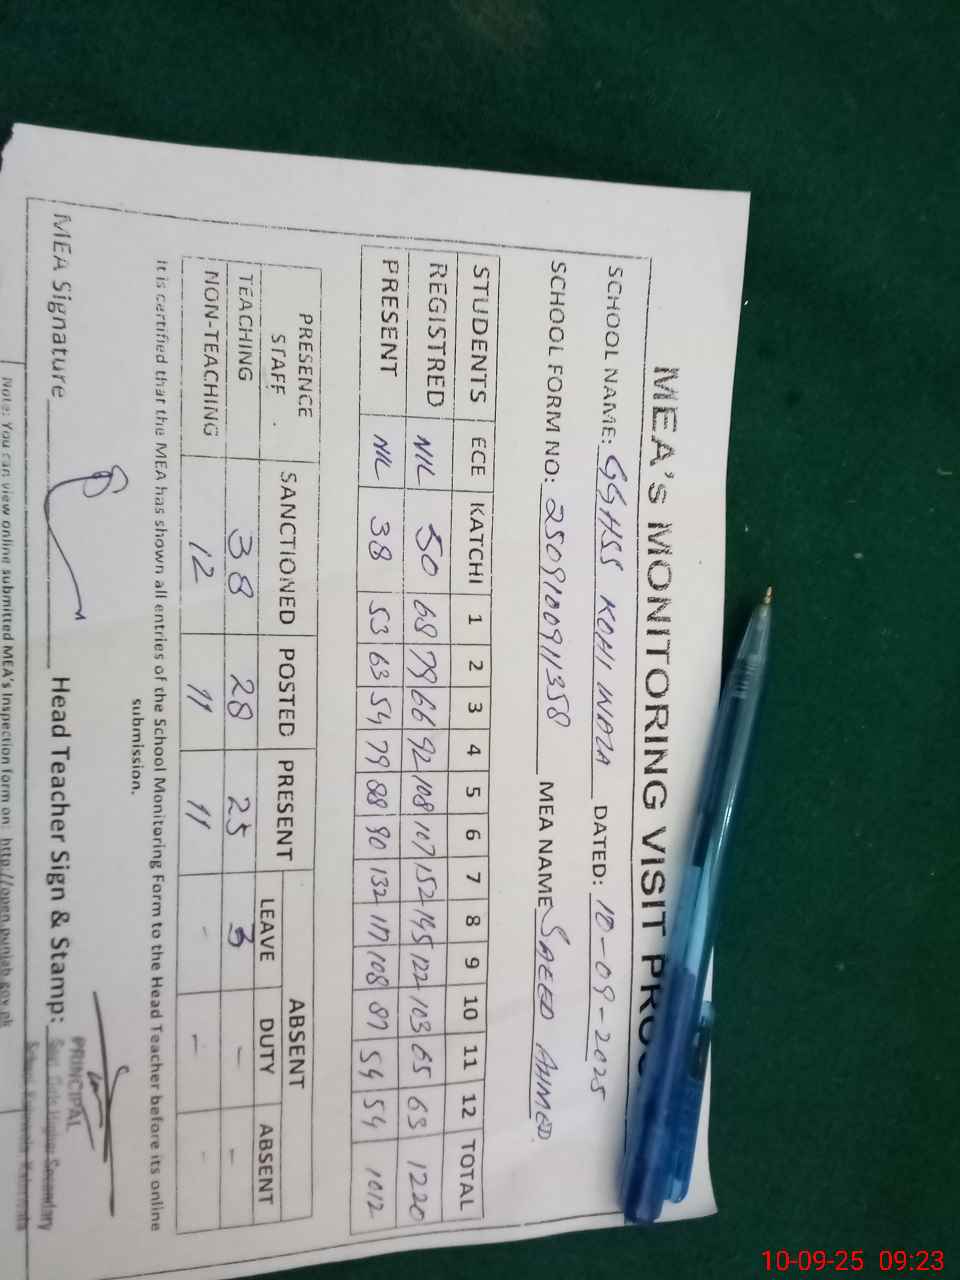 MEA's MONITORING VISIT PRO
SCHOOL NAME: GGHSS KOHI INAZA DATED: 10-09-2025
SCHOOL FORM NO: 2509100911358 MEA NAME SAEED AHMED
STUDENTS ECE KATCHI 1 2 3 4 5 6 7 8 9 10 11 12 TOTAL
REGISTRED NIL 50 68 79 66 92 108 107 152 145 122 103 65 63 1220
PRESENT NIL 38 53 63 54 79 88 90 132 117 108 87 54 54 1012
PRESENCE STAFF SANCTIONED POSTED PRESENT ABSENT
LEAVE DUTY ABSENT
TEACHING 38 28 25 3 - -
NON-TEACHING 12 11 11 - - -
It is certified that the MEA has shown all entries of the School Monitoring Form to the Head Teacher before its online
submission.
MEA Signature Head Teacher Sign & Stamp:
PRINCIPAL
Secondary
Note: You can view online submitted MEA's Inspection Form on: http://open.punjab.gov.pk
10-09-25 09:23